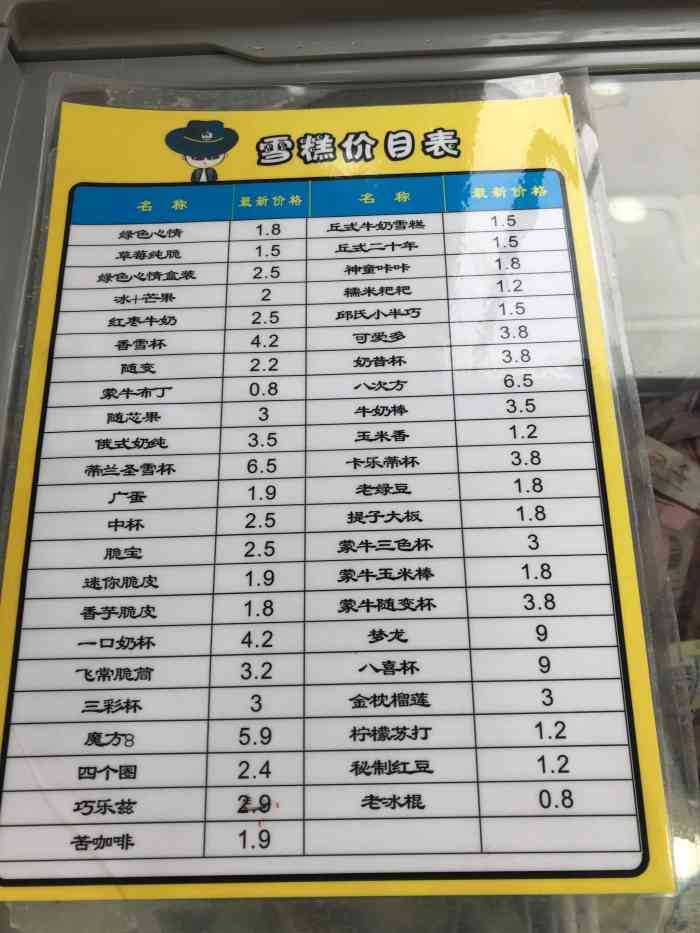 雪糕价目表
名 称 最新价格 名 称 最新价格
绿色心情 1.8 丘式牛奶雪糕 1.5
草莓纯脆 1.5 丘式二十年 1.5
绿色心情盒装 2.5 神童咔咔 1.8
冰+芒果 2 糯米粑粑 1.2
红枣牛奶 2.5 邱氏小半巧 1.5
香雪杯 4.2 可爱多 3.8
随变 2.2 奶昔杯 3.8
蒙牛布丁 0.8 八次方 6.5
随芯果 3 牛奶棒 3.5
俄式奶纯 3.5 玉米香 1.2
蒂兰圣雪杯 6.5 卡乐蒂杯 3.8
广蛋 1.9 老绿豆 1.8
中杯 2.5 提子大板 1.8
脆宝 2.5 蒙牛三色杯 3
迷你脆皮 1.9 蒙牛玉米棒 1.8
香芋脆皮 1.8 蒙牛随变杯 3.8
一口奶杯 4.2 梦龙 9
飞常脆筒 3.2 八喜杯 9
三彩杯 3 金枕榴莲 3
魔方8 5.9 柠檬苏打 1.2
四个圈 2.4 秘制红豆 1.2
巧乐兹 2.9 老冰棍 0.8
苦咖啡 1.9